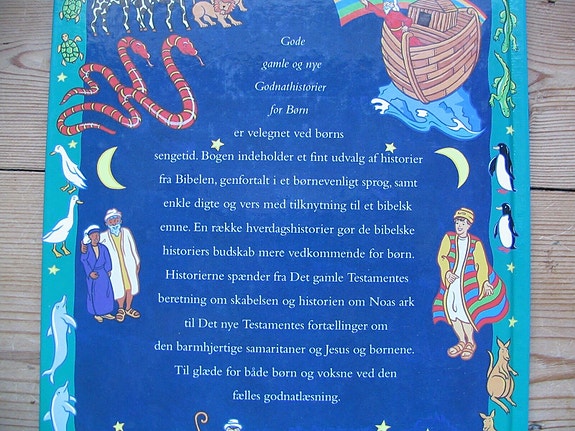 Gode
gamle og nye
Godnathistorier
for Børn
er velegnet ved børns
sengetid. Bogen indeholder et fint udvalg af historier
fra Bibelen, genfortalt i et børnevenligt sprog, samt
enkle digte og vers med tilknytning til et bibelsk
emne. En række hverdagshistorier gør de bibelske
historiers budskab mere vedkommende for børn.
Historierne spænder fra Det gamle Testamentes
beretning om skabelsen og historien om Noas ark
til Det nye Testamentes fortællinger om
den barmhjertige samaritaner og Jesus og børnene.
Til glæde for både børn og voksne ved den
fælles godnatlæsning.